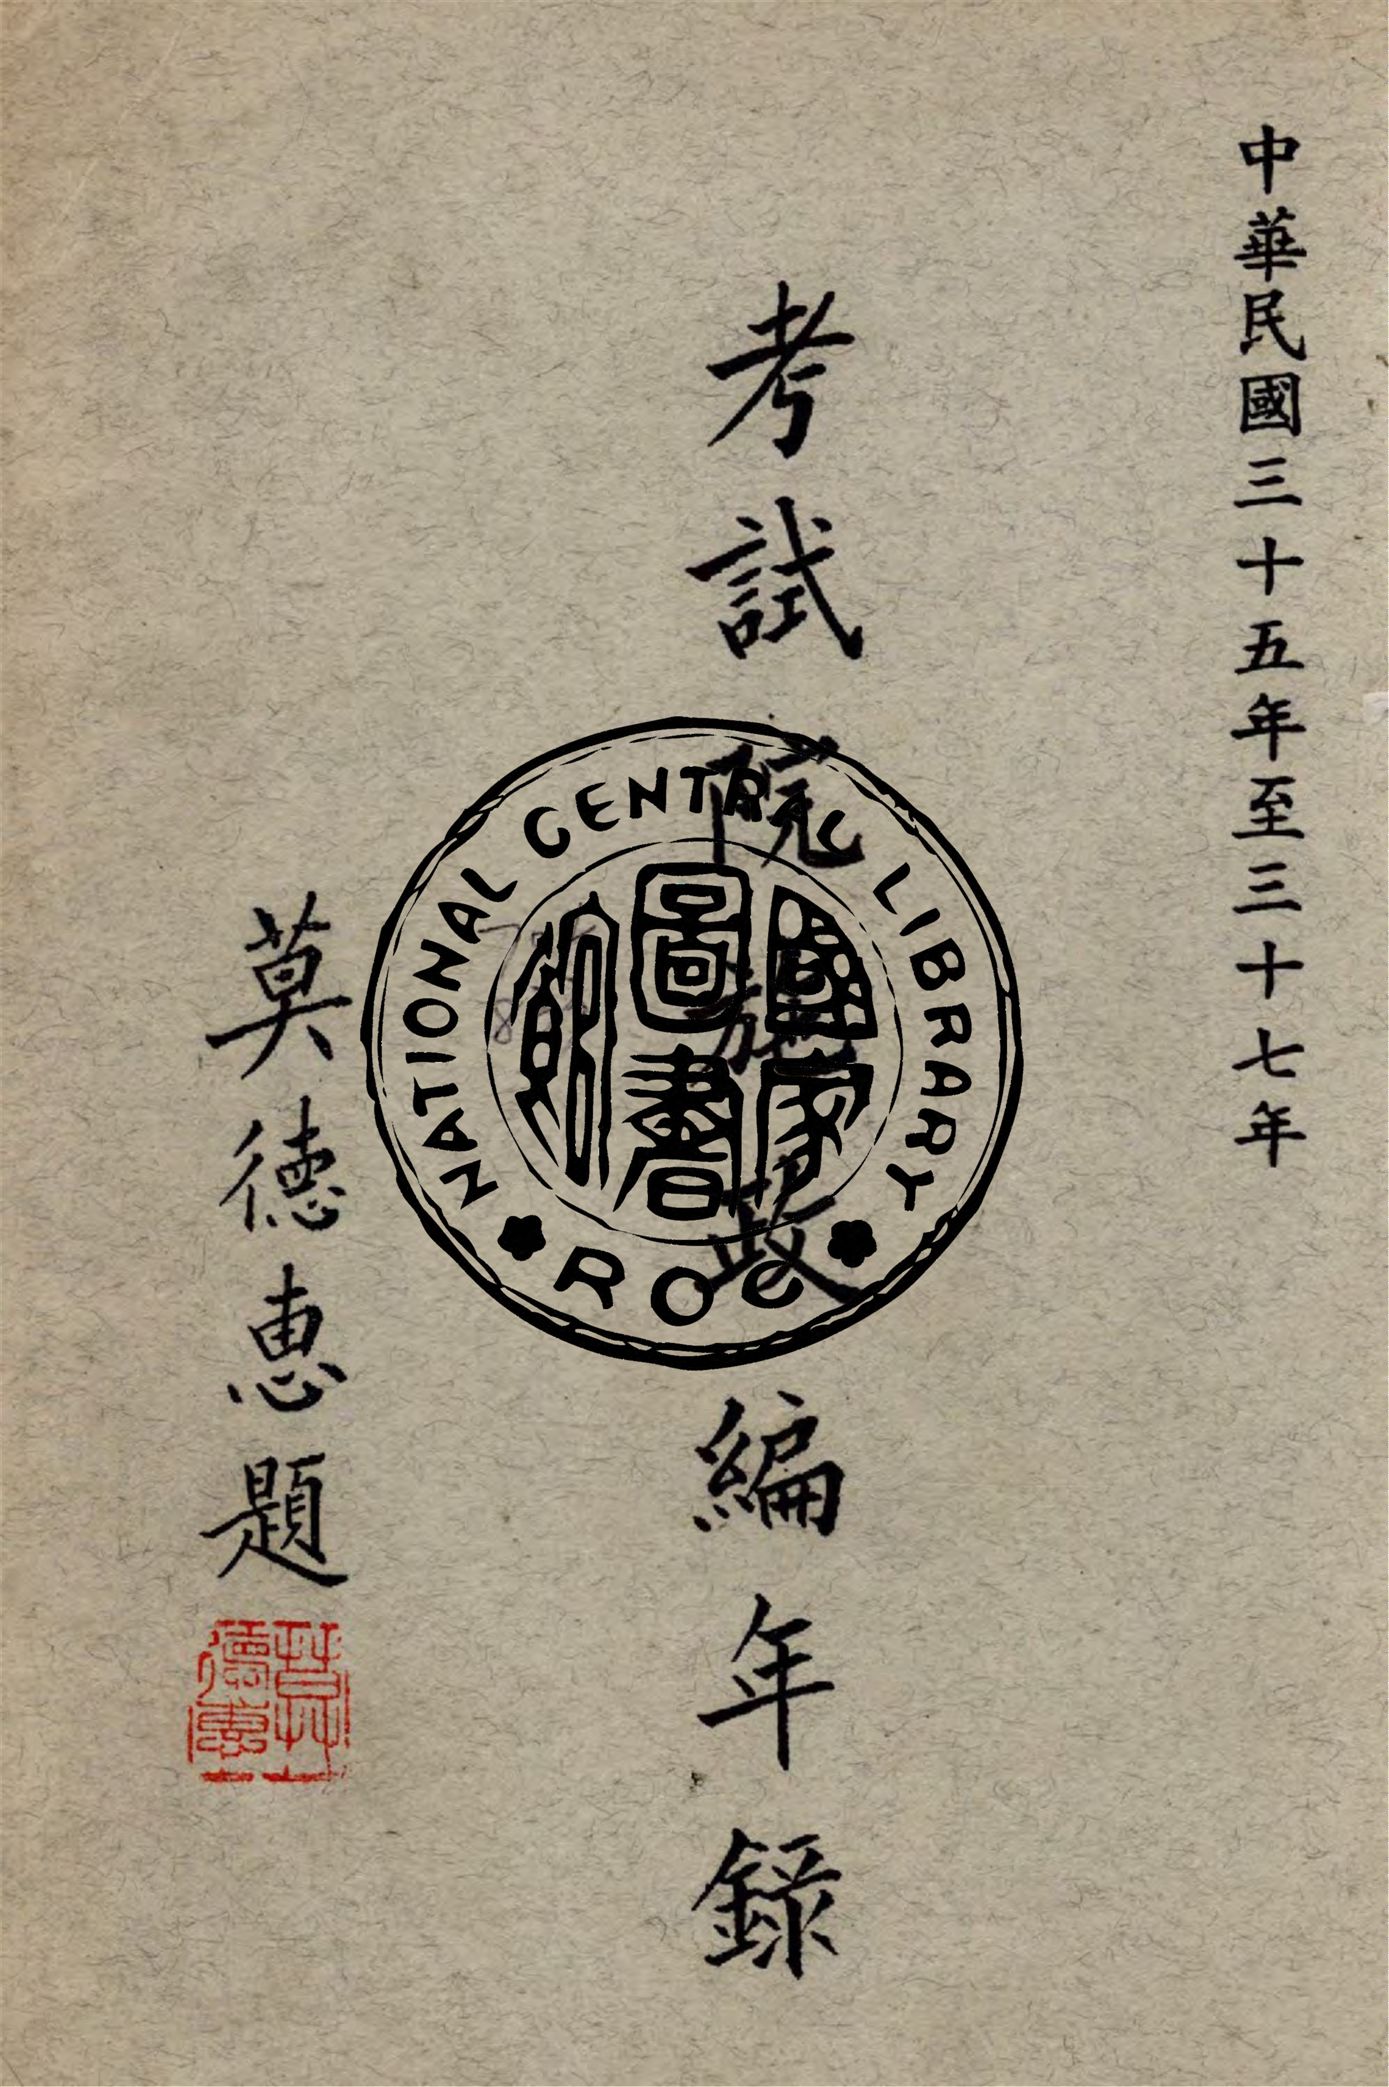 中華民國三十五年至三十七年
考試院施政編年錄
莫德惠題
莫德惠
NATIONAL CENTRAL LIBRARY
ROC
國家
圖書
館